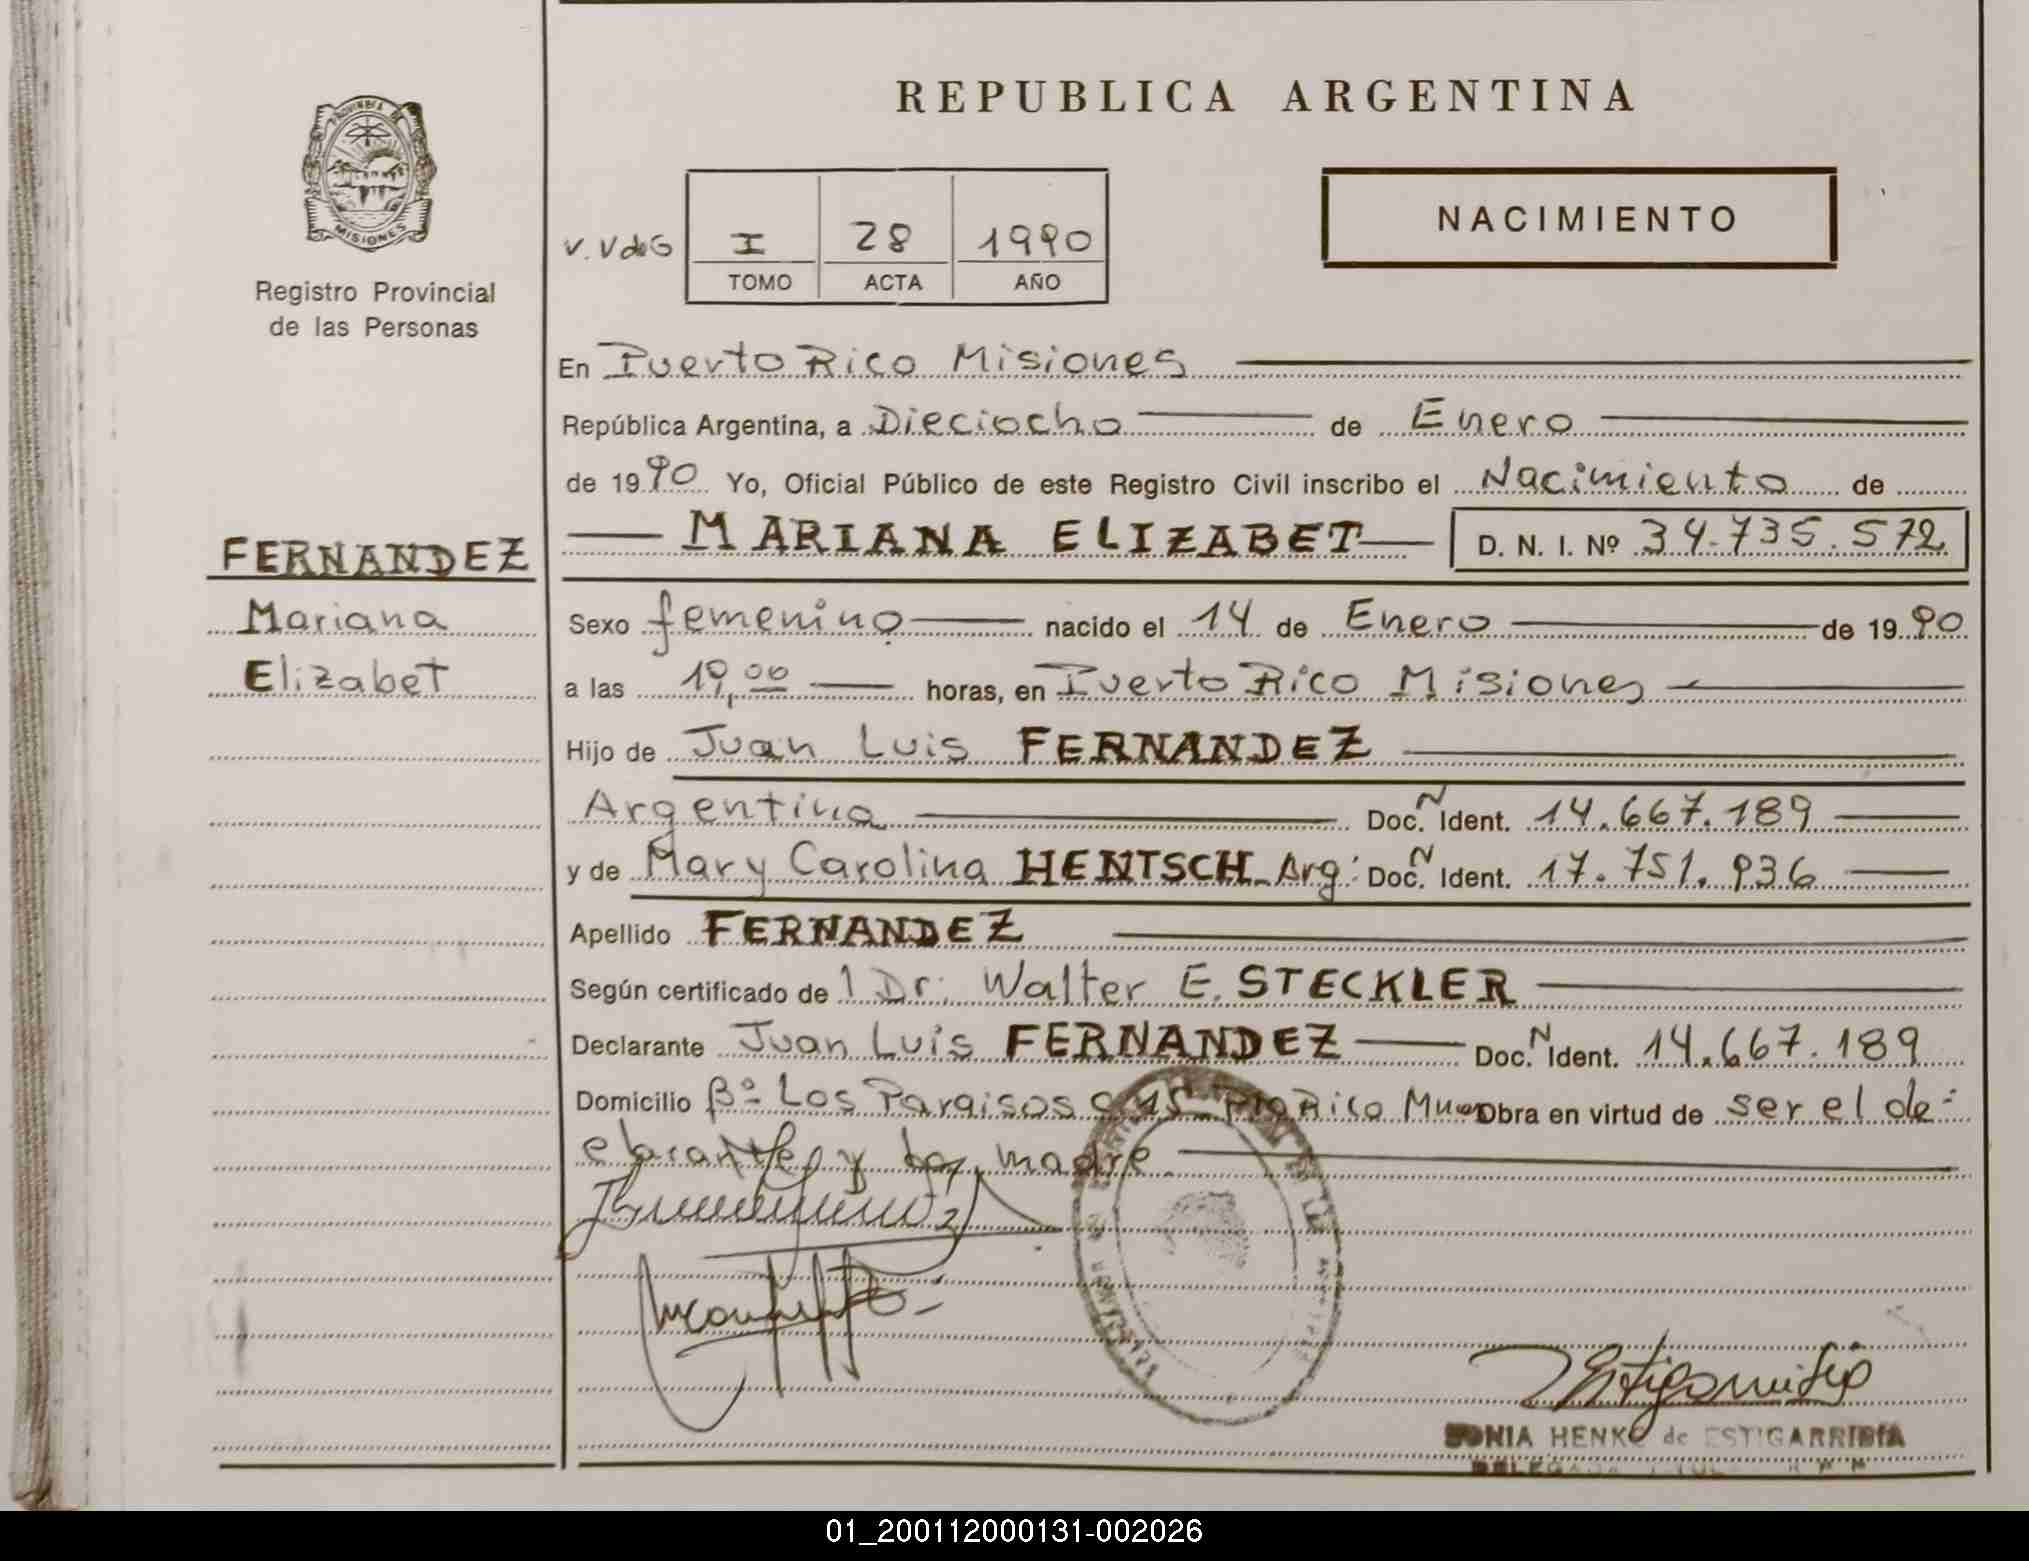 REPUBLICA ARGENTINA
PROVINCIA DE
MISIONES
Registro Provincial
de las Personas
NACIMIENTO
V. V de G
I 28 1990
TOMO ACTA AÑO
En Puerto Rico Misiones
República Argentina, a Dieciocho de Enero
de 1990 Yo, Oficial Público de este Registro Civil inscribo el Nacimiento de
FERNANDEZ
Mariana
Elizabet
MARIANA ELIZABET D. N. I. Nº 34.735.572
Sexo femenino nacido el 14 de Enero de 1990
a las 19,00 horas, en Puerto Rico Misiones
Hijo de Juan Luis FERNANDEZ
Argentina Doc. N Ident. 14.667.189
y de Mary Carolina HENTSCH Arg: Doc. N Ident. 17.751.936
Apellido FERNANDEZ
Según certificado de l Dr. Walter E. STECKLER
Declarante Juan Luis FERNANDEZ Doc. N Ident. 14.667.189
Domicilio Bº Los Paraisos C 15 Pto Rico Obra en virtud de ser el de-
clarante y la madre
SONIA HENKE de ESTIGARRIBIA
01_200112000131-002026